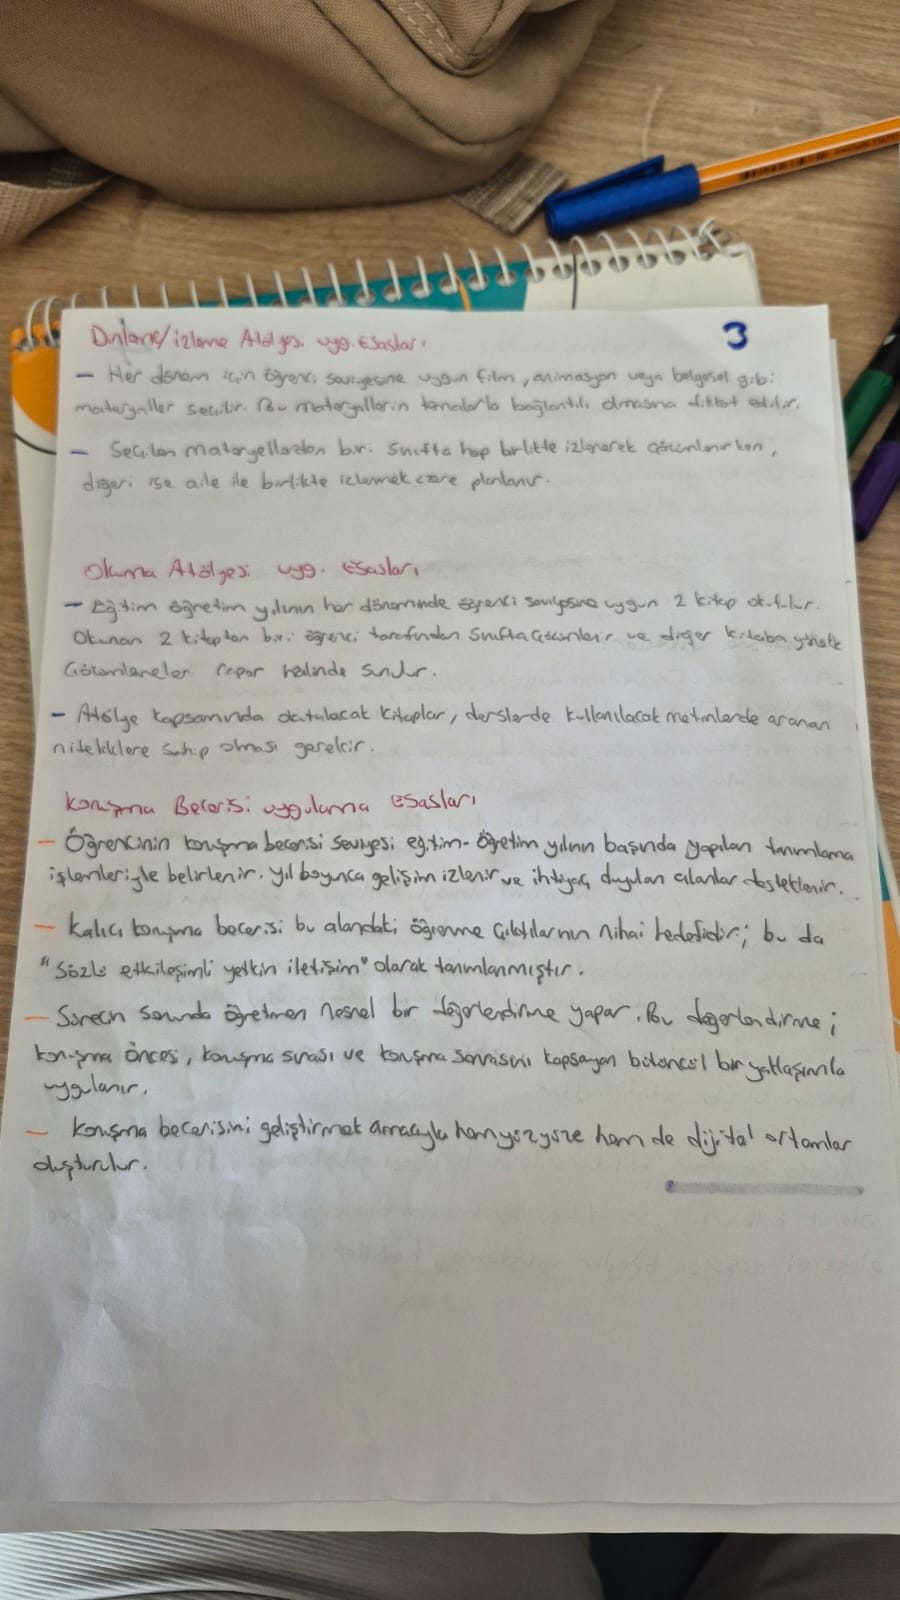 Dinleme/izleme Atölyesi uyg. Esasları
3
– Her dönem için öğrenci seviyesine uygun film, animasyon veya belgesel gibi
materyaller seçilir. Bu materyallerin temalarla bağlantılı olmasına dikkat edilir.
– Seçilen materyallerden biri sınıfta hep birlikte izlenerek çözümlenirken,
diğeri ise aile ile birlikte izlemek üzere planlanır.
Okuma Atölyesi uyg. Esasları
– Eğitim öğretim yılının her döneminde öğrenci seviyesine uygun 2 kitap okutulur.
Okunan 2 kitaptan biri öğrenci tarafından sınıfta çözümlenir ve diğer kitaba yönelik
çözümlemeler rapor halinde sunulur.
– Atölye kapsamında okutulacak kitaplar, derslerde kullanılacak metinlerde aranan
niteliklere sahip olması gerekir.
Konuşma Becerisi uygulama Esasları
– Öğrencinin konuşma becerisi seviyesi eğitim-öğretim yılının başında yapılan tanımlama
işlemleriyle belirlenir. yıl boyunca gelişim izlenir ve ihtiyaç duyulan alanlar desteklenir.
– Kalıcı konuşma becerisi bu alandaki öğrenme çıktılarının nihai hedefidir; bu da
"Sözlü etkileşimli yetkin iletişim" olarak tanımlanmıştır.
– Sürecin sonunda öğretmen nesnel bir değerlendirme yapar. Bu değerlendirme;
konuşma öncesi, konuşma sırası ve konuşma sonrasını kapsayan bütüncül bir yaklaşımla
uygulanır.
– Konuşma becerisini geliştirmek amacıyla hem yüzyüze hem de dijital ortamlar
oluşturulur.